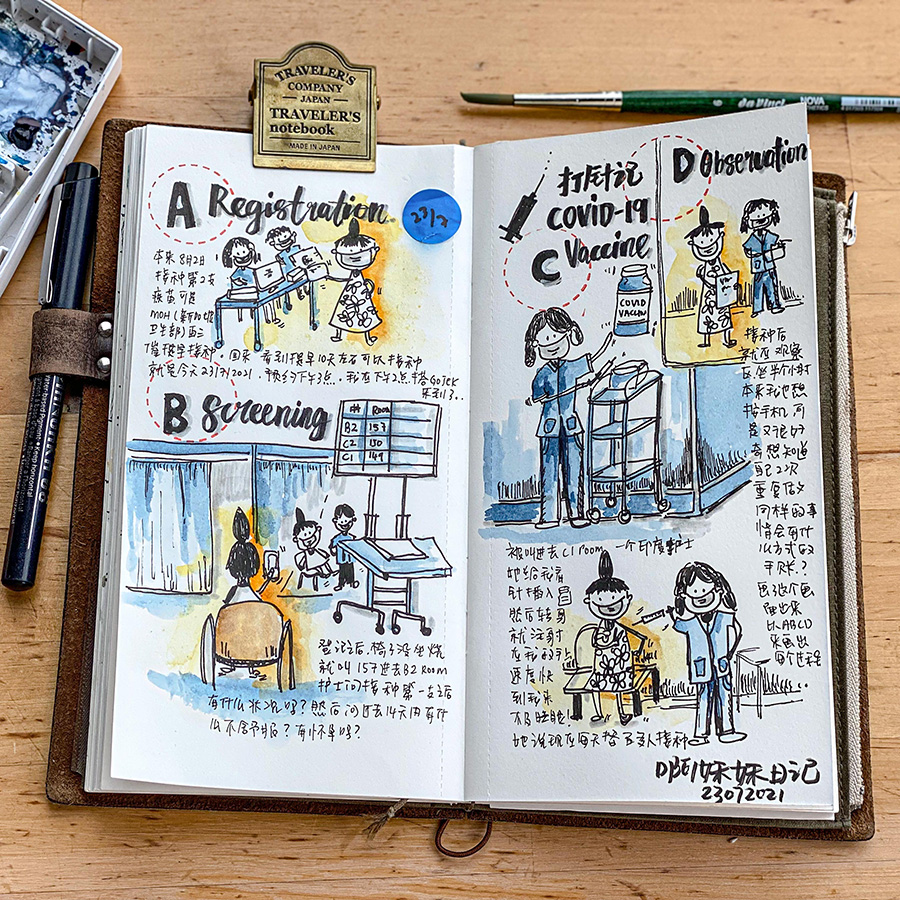 TRAVELER'S
COMPANY
JAPAN
TRAVELER'S
notebook
MADE IN JAPAN
da Vinci NOVA
A Registration
23/7
本来8月2日
接种第2支
疫苗可是
MOH(新加坡
卫生部)再三
催提早接种。回来看到提早10天左右可以接种
就是今天23/7/2021。预约下午3点。我在下午2点搭GOJEK
来到了..
B Screening
Q# Room
B2 157
C2 150
C1 149
登记之后,椅子没坐烧
就叫157进去B2 Room
护士问接种第一支之后
有什么状况吗?然后问过去14天内有什
么不舒服?有怀孕吗?
打针记
COVID-19
C Vaccine
COVID
VACCIN
被叫进去C1 room 一个印度护士
她给我看
针插入
然后转身
就注射
在我的
速度快
到我来
不及眨眼!
她说现在每天替 百人接种
D Observation
接种后
就在观察
区坐半小时
本来我也想
按手机可
是又很好
奇想知道
自己2次
重复做
同样的事
情会有什
么方式的
手账?
画这个画
画出来
以ABCD
来画出
每个过程
妹妹日记
23072021